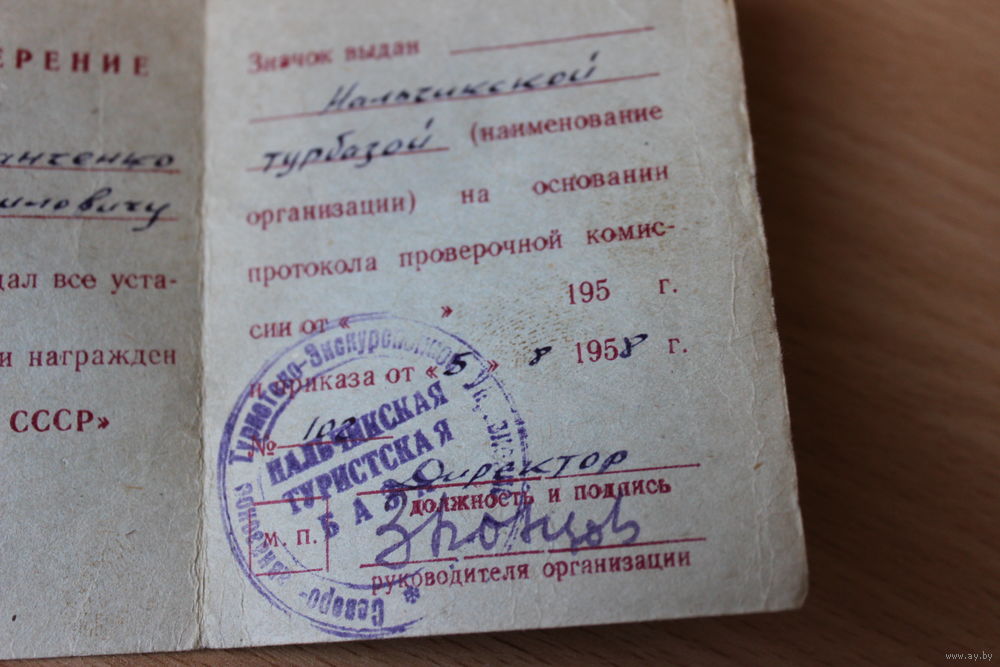 ЕРЕНИЕ
анченко
иловичу
дал все уста-
и награжден
СССР»
Значок выдан
Нальчикской
турбазой (наименование
организации) на основании
протокола проверочной комис-
сии от « » 195 г.
и приказа от «5» 8 1958 г.
№ 102
Директор
должность и подпись
М. П.
руководителя организации
Туристско-Экскурсионное
НАЛЬЧИКСКАЯ
ТУРИСТСКАЯ
БАЗА
Северо-
www.ay.by